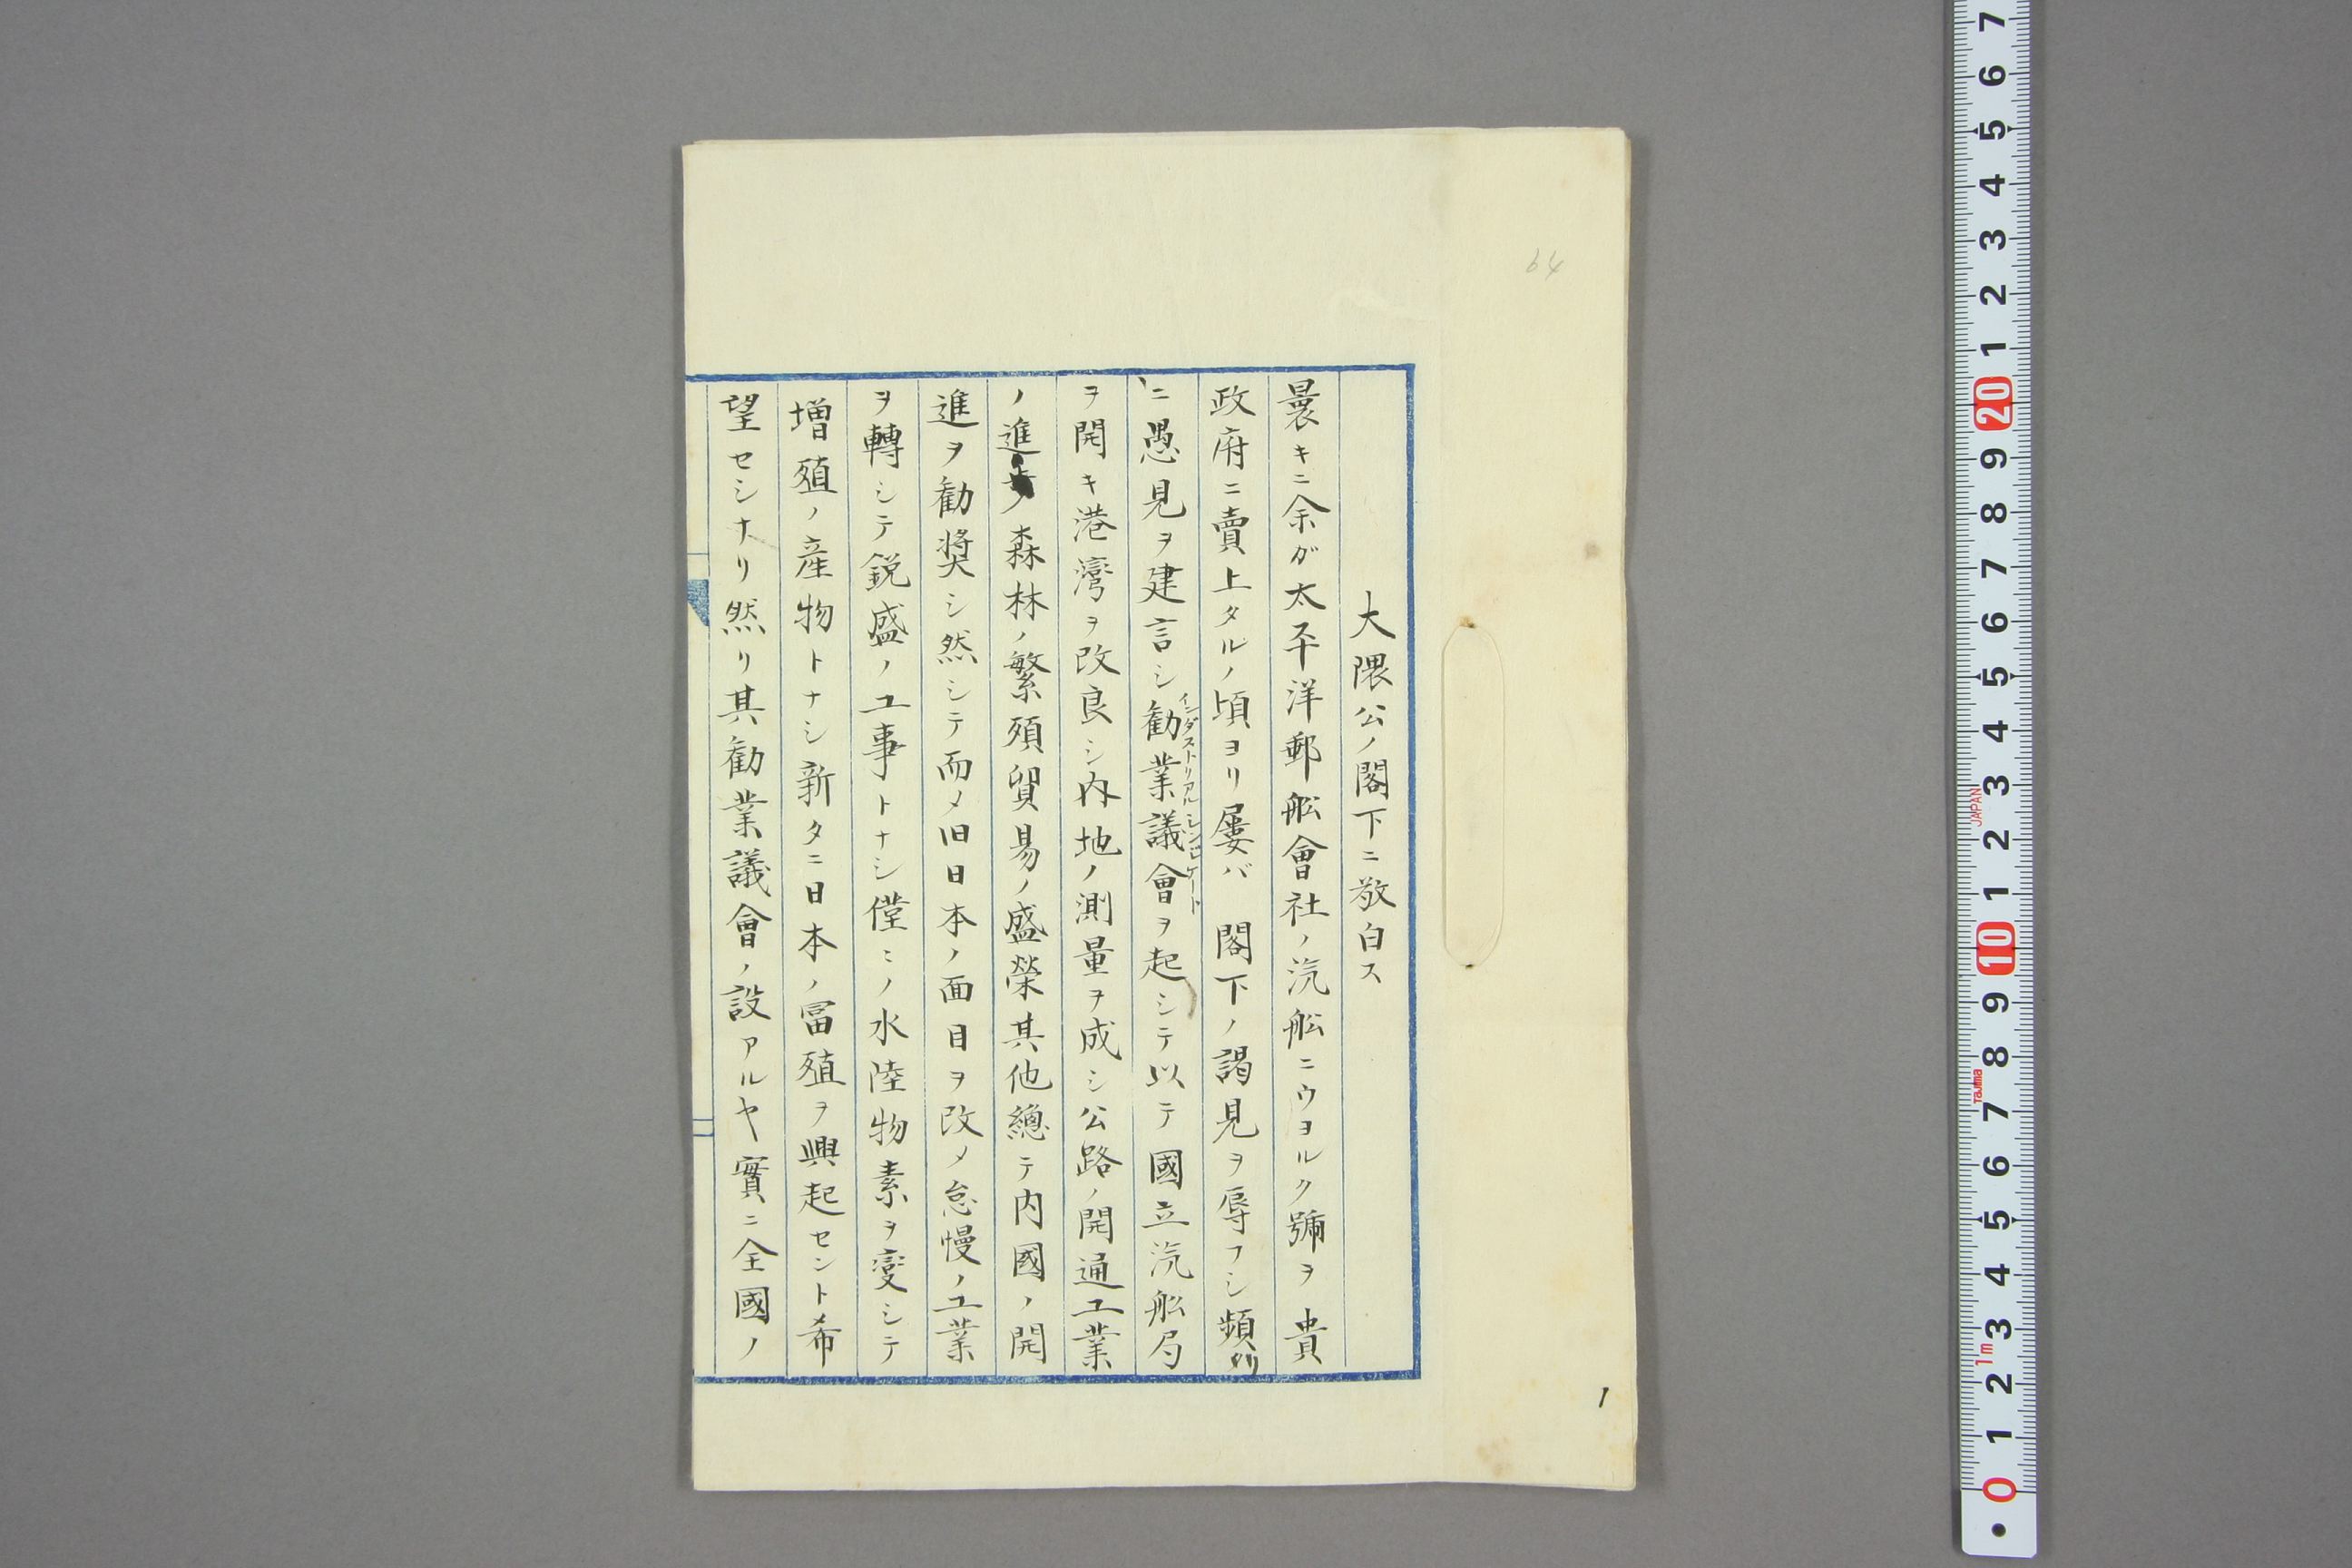 大隈公ノ閣下ニ敬白ス
曩キニ余ガ太平洋郵舩會社ノ汽舩ニウヨルク號ヲ貴
政府ニ賣上タルノ頃ヨリ屢バ 閣下ノ謁見ヲ辱フシ頻リ
ニ愚見ヲ建言シ勧業議會ヲ起シテ以テ國立汽舩局
インダストリアル シンジケート
ヲ開キ港灣ヲ改良シ内地ノ測量ヲ成シ公路ノ開通工業
ノ進歩ノ森林ノ繁殖貿易ノ盛榮其他總テ内國ノ開
進ヲ勧奨シ然シテ而メ旧日本ノ面目ヲ改メ怠慢ノ工業
ヲ轉シテ鋭盛ノ工事トナシ僅ミノ水陸物素ヲ變シテ
増殖ノ産物トナシ新タニ日本ノ冨殖ヲ興起セント希
望セシナリ然リ其勧業議會ノ設アルヤ實ニ全國ノ
64
1
7 6 5 4 3 2 1 20 9 8 7 6 5 4 3 2 1 10 9 8 7 6 5 4 3 2 1 0
JAPAN
Tajima
1m